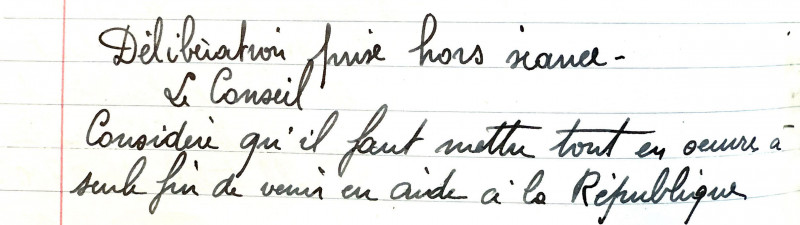 Délibération prise hors séance -
Le Conseil
Considère qu'il faut mettre tout en oeuvre à
seule fin de venir en aide à la République